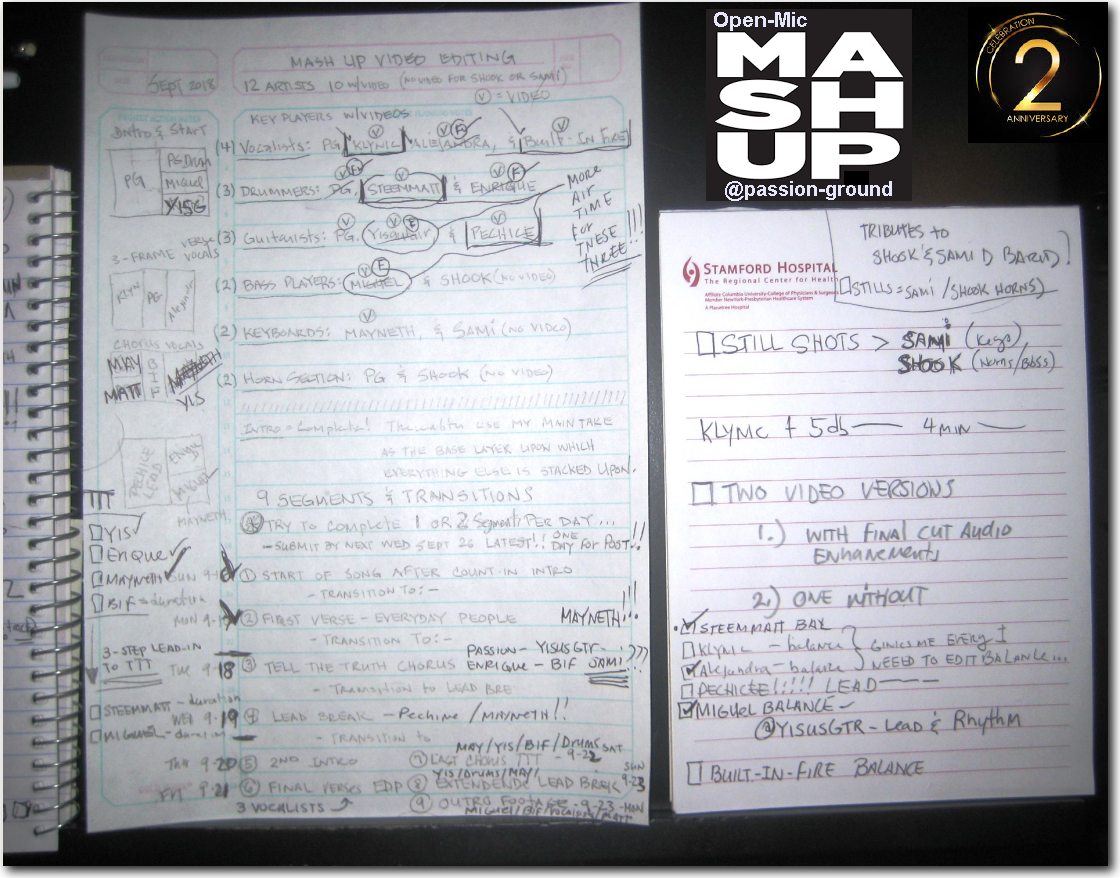 Open-Mic
MASHUP
@passion-ground
CELEBRATION
2
ANNIVERSARY
MASH UP VIDEO EDITING
SEPT 2018
12 ARTISTS 10 W/VIDEO (NO VIDEO FOR SHOOK OR SAMI)
Ⓥ = VIDEO
KEY PLAYERS W/VIDEOS
(4) VOCALISTS: PG, KLYNIC, ALEJANDRA, & BUILT-IN FIRE
(3) DRUMMERS: PG, STEEMMATT & ENRIQUE
(3) GUITARISTS: PG, & PECHICE
MORE AIR TIME FOR THESE THREE!!!
(2) BASS PLAYERS: MIGUEL & SHOOK (NO VIDEO)
(2) KEYBOARDS: MAYNETH, & SAMI (NO VIDEO)
(2) HORN SECTION: PG & SHOOK (NO VIDEO)
INTRO = COMPLETE! USE MY MAIN TAKE
AS THE BASE LAYER UPON WHICH
EVERYTHING ELSE IS STACKED UPON.
9 SEGMENTS & TRANSITIONS
TRY TO COMPLETE 1 OR 2 Segments PER DAY...
- SUBMIT BY NEXT WED SEPT 26 LATEST!! ONE DAY FOR POST!!
① START OF SONG AFTER COUNT-IN INTRO
- TRANSITION TO:-
② FIRST VERSE - EVERYDAY PEOPLE MAYNETH!!!
- TRANSITION TO:-
PASSION - YISUSGTR -
③ TELL THE TRUTH CHORUS ENRIQUE - BIF SAMI!???
- TRANSITION TO LEAD BRE
④ LEAD BREAK - Pechine / MAYNETH!!
- TRANSITION TO
⑤ 2ND INTRO
⑥ FINAL VERSES EDP
3 VOCALISTS
MAY/YIS/BIF/DRUMS SAT
⑦ LAST CHORUS TTT - 9-22
YIS/DRUMS/MAY/ SUN
⑧ EXTENDENDE LEAD BREAK 9-23
⑨ OUTRO FOOTAGE - 9-23 - MON
Intro & Start
PG
PG Drum
Miguel
YISG
3-FRAME VERSE VOCALS
KLYN
PG
Alejandra
CHORUS VOCALS
MAY
MATT
YIS
PECHICE LEAD
ENRIQ
MIGUEL
MAYNETH
TTT
YIS
ENQUE
MAYNETH SUN
BIF = duration
MON
3-STEP LEAD-IN
TO TTT
TUE 9-18
STEEMMATT - duration
WED 9-19
MIGUEL - duration
THU 9-20
FRI 9-21
TRIBUTES TO
SHOOK & SAMI
STILLS = SAMI / SHOOK HORNS
STAMFORD HOSPITAL
The Regional Center for Health
Affiliate Columbia University-College of Physicians & Surgeons
Member NewYork-Presbyterian Healthcare System
A Planetree Hospital
STILL SHOTS > SAMI (Keys)
SHOOK (HORNS/BASS)
KLYNIC + 5db — 4 MIN —
TWO VIDEO VERSIONS
1.) WITH FINAL CUT AUDIO
ENHANCEMENTS
2.) ONE WITHOUT
STEEMMATT BAL
KLYNIC - balance
Alejandra - balance
GIVES ME EVERY I
NEED TO EDIT BALANCE...
PECHICE!!!!! LEAD
MIGUEL BALANCE -
@YISUSGTR - Lead & Rhythm
BUILT-IN-FIRE BALANCE